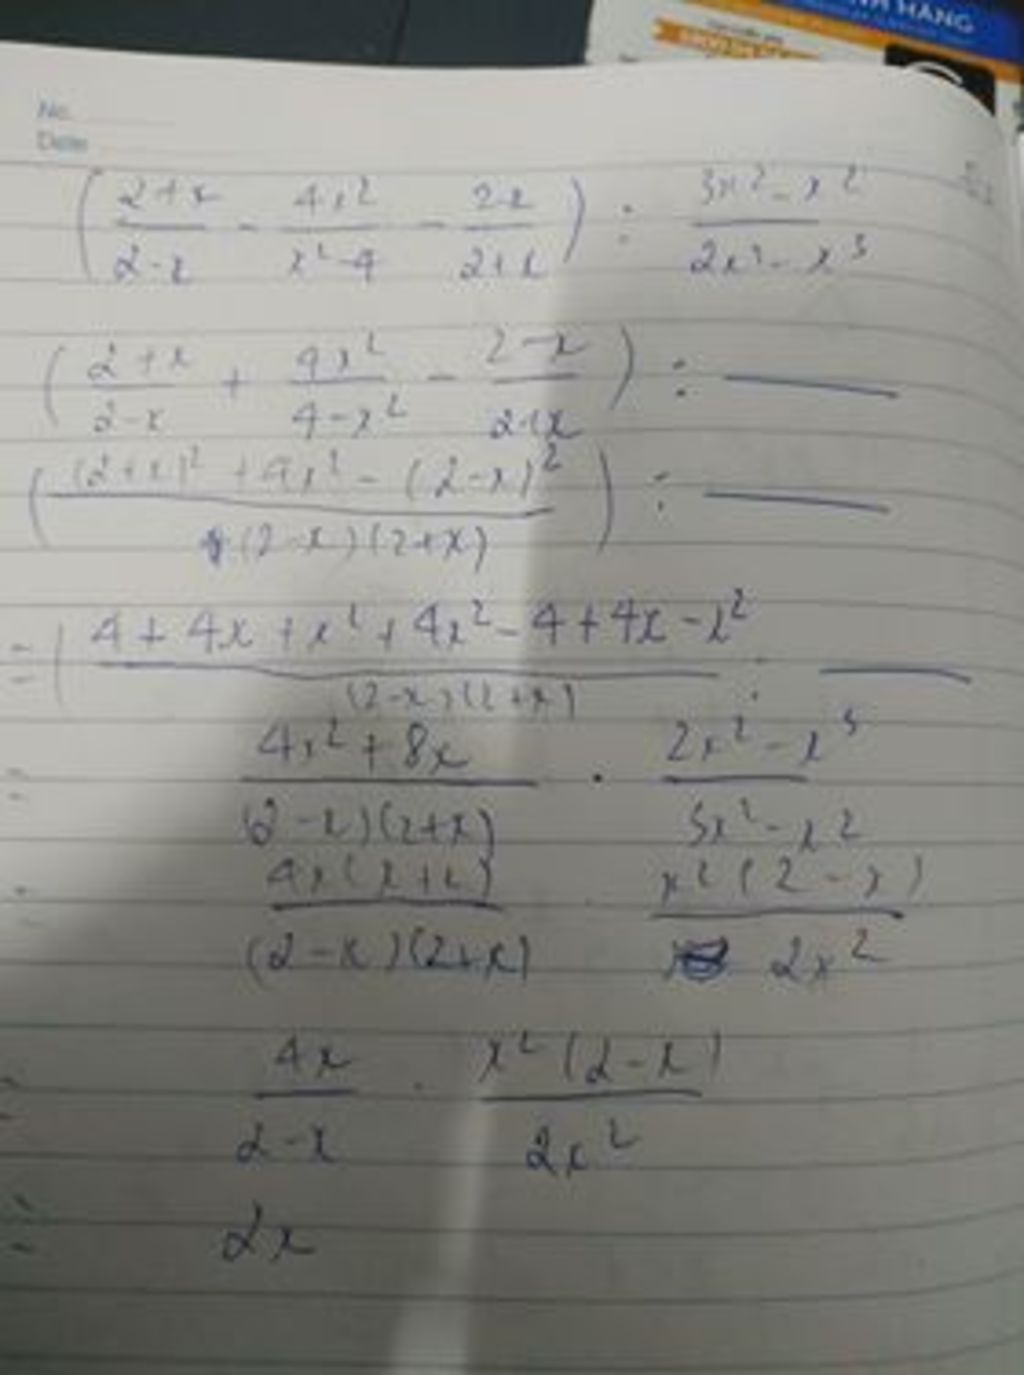 NH HÀNG
No.
Date
( (2+x)/(2-x) - 4x²/(x²-4) - (2-x)/(2+x) ) : (3x²-x²)/(2x²-x³)
( (2+x)/(2-x) + 4x²/(4-x²) - (2-x)/(2+x) ) : ———
( ((2+x)² + 4x² - (2-x)²)/((2-x)(2+x)) ) : ———
= ( (4+4x+x²+4x²-4+4x-x²)/((2-x)(2+x)) : ———
= (4x²+8x)/((2-x)(2+x)) . (2x²-x³)/(3x²-x²)
= 4x(x+2)/((2-x)(2+x)) . x²(2-x)/(2x²)
= 4x/(2-x) . x²(2-x)/(2x²)
= 2x